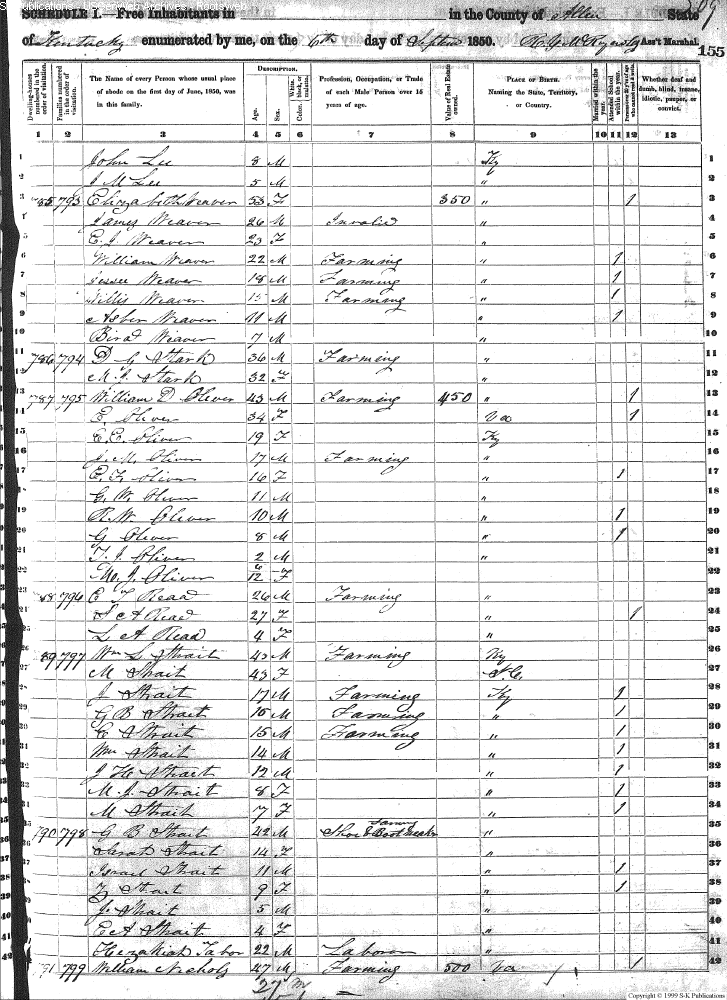 SCHEDULE I.—Free Inhabitants in in the County of Allen State
of Kentucky enumerated by me, on the 6th day of Septem 1850. Ass't Marshal.
155
Dwelling-houses numbered in the order of visitation.
Families numbered in the order of visitation.
The Name of every Person whose usual place of abode on the first day of June, 1850, was in this family.
DESCRIPTION.
Age.
Sex.
Color, White, black, or mulatto.
Profession, Occupation, or Trade of each Male Person over 15 years of age.
Value of Real Estate owned.
PLACE OF BIRTH. Naming the State, Territory, or Country.
Married within the year.
Attended School within the year.
Persons over 20 y'rs of age who cannot read & write.
Whether deaf and dumb, blind, insane, idiotic, pauper, or convict.
1 2 3 4 5 6 7 8 9 10 11 12 13
John Lee 8 M Ky 1
J M Lee 5 M " 2
785 793 Elizabeth Weaver 53 F 350 " 1 3
James Weaver 26 M Invalid " 4
E. J. Weaver 23 F " 5
William Weaver 22 M Farming " 1 6
Jessee Weaver 18 M Farming " 1 7
Willis Weaver 15 M Farming " 1 8
Asber Weaver 11 M " 1 9
Birat Weaver 7 M " 10
786 794 D C Stark 36 M Farming " 11
M. J. Stark 32 F " 12
787 795 William D Oliver 43 M Farming 450 " 1 13
E. Oliver 34 F Va 1 14
E E. Oliver 19 F Ky 15
J. M. Oliver 17 M Farming " 16
E. F. Oliver 16 F " 1 17
G. W. Oliver 11 M " 18
R. W. Oliver 10 M " 1 19
G Oliver 8 M " 1 20
T. J. Oliver 2 M " 21
M. J. Oliver 6/12 F 22
88 796 E T Read 26 M Farming " 23
S A Read 27 F " 1 24
L A Read 4 F " 25
89 797 Wm L. Strait 43 M Farming Ky 26
M Strait 43 F N.C. 27
J Strait 17 M Farming Ky 1 28
G B Strait 15 M Farming " 1 29
E Strait 15 M Farming " 1 30
Wm Strait 14 M " 1 31
J H Strait 12 M " 1 32
M. J. Strait 8 F " 1 33
M Strait 7 F " 1 34
790 798 G B Strait 42 M Shoe & Boot Maker Farming " 35
Strait 14 F " 36
Israel Strait 11 M " 1 37
Strait 9 F " 1 38
J. Strait 5 M " 39
E A Strait 4 F " 40
Hezakiah Tabor 22 M Laborer " 41
91 799 William Nichols 47 M Farming 500 Va 1 42
Copyright © 1999 S-K Publications